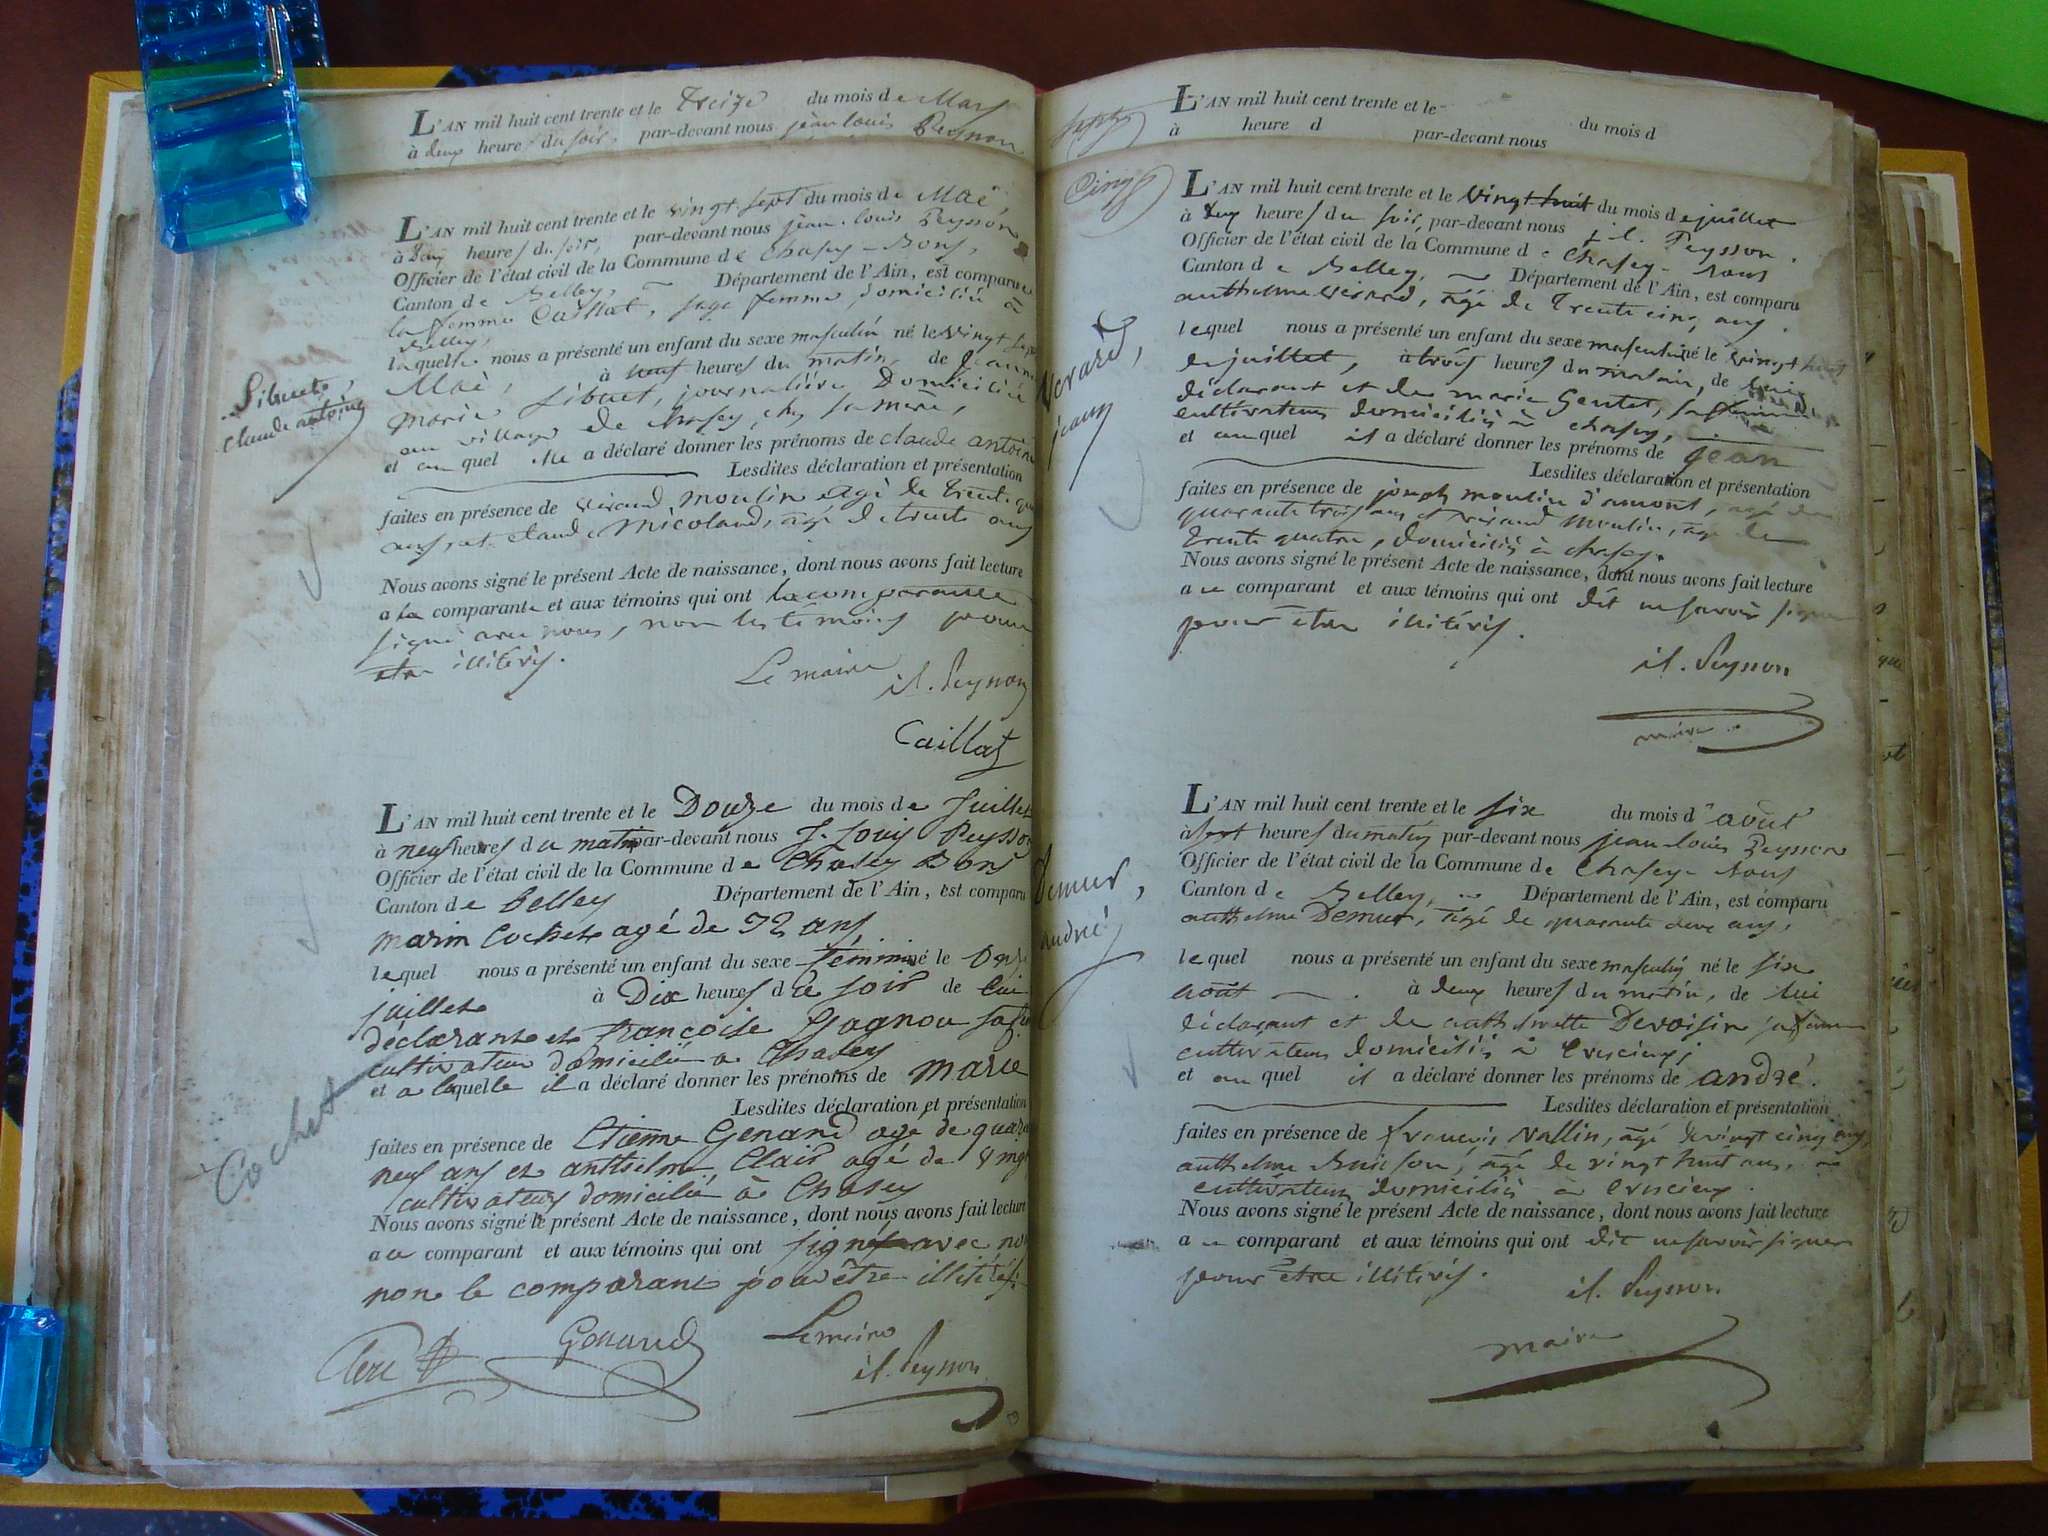 L'AN mil huit cent trente et le treize du mois de Mars
à deux heures du soir, par-devant nous jean louis Peysson
L'AN mil huit cent trente et le vingt sept du mois de Mai,
à deux heures du soir, par-devant nous jean-louis Peysson
Officier de l'état civil de la Commune de Chasey-Bons,
Canton de Belley, Département de l'Ain, est comparue
la femme Caillat, sage femme, domiciliée à
Belley,
laquelle nous a présenté un enfant du sexe masculin né le vingt sept
Mai, à neuf heures du matin, de jeanne
Marie Sibuet, journalière Domiciliée
au village de Chasey, chez sa mère,
et au quel elle a déclaré donner les prénoms de claude antoine
Lesdites déclaration et présentation
faites en présence de Vérand moulin âgé de trente quatre
ans, et claude Micoland, âgé de trente ans
Nous avons signé le présent Acte de naissance, dont nous avons fait lecture
a la comparante et aux témoins qui ont la comparante
signé avec nous, non les témoins pour
être illitérés.
Le maire
j.l. Peysson
Caillat
Sibuet,
claude antoine
L'AN mil huit cent trente et le Douze du mois de Juillet
à neuf heures du matin par-devant nous J. Louis Peysson
Officier de l'état civil de la Commune de Chasey Bons
Canton de Belley Département de l'Ain, est comparu
marin Cochet agé de 32 ans
lequel nous a présenté un enfant du sexe feminin né le onze
juillet à Dix heures du soir de lui
déclarant et françoise Gagnou sa fe
cultivateur domicilié a Chasey
et a laquelle il a déclaré donner les prénoms de marie
Lesdites déclaration et présentation
faites en présence de Etienne Genand agé de quara
neuf ans et anthelme Clair agé de vingt
cultivateurs domicilié à Chasey
Nous avons signé le présent Acte de naissance, dont nous avons fait lecture
a ce comparant et aux témoins qui ont signés avec nous
non le comparant pour être illitéré
Genand
Le maire
j.l. Peysson
Cochet
L'AN mil huit cent trente et le du mois d
à heure d par-devant nous
L'AN mil huit cent trente et le vingt huit du mois de juillet
à deux heures du soir, par-devant nous j-l. Peysson.
Officier de l'état civil de la Commune de Chasey-Bons
Canton de Belley, Département de l'Ain, est comparu
anthelme Verard, âgé de trente cinq ans.
lequel nous a présenté un enfant du sexe masculin né le vingt huit
de juillet, à trois heures du matin, de lui
déclarant et de marie Gentet, sa femme
cultivateurs domiciliés à chasey,
et au quel il a déclaré donner les prénoms de jean
Lesdites déclaration et présentation
faites en présence de joseph moulin d'amont, agé de
quarante trois ans et Vérand Moulin, âgé de
trente quatre, domiciliés à chasey.
Nous avons signé le présent Acte de naissance, dont nous avons fait lecture
a ce comparant et aux témoins qui ont dit ne savoir signer
pour être illitérés.
j.l. Peysson
maire
Verard,
jean
L'AN mil huit cent trente et le six du mois d'août
à sept heures du matin par-devant nous jean-louis Peysson
Officier de l'état civil de la Commune de Chasey-Bons
Canton de Belley, Département de l'Ain, est comparu
anthelme Demur, âgé de quarante deux ans,
lequel nous a présenté un enfant du sexe masculin né le six
août à deux heures du matin, de lui
déclarant et de anthelmette Devoisin sa femme
cultivateurs domiciliés à
et au quel il a déclaré donner les prénoms de andré.
Lesdites déclaration et présentation
faites en présence de françois Vallin, âgé de vingt cinq ans,
anthelme Buisson, âgé de vingt huit ans,
cultivateurs domiciliés à
Nous avons signé le présent Acte de naissance, dont nous avons fait lecture
a ce comparant et aux témoins qui ont dit ne savoir signer
pour être illitérés.
j.l. Peysson
maire
Demur,
andré